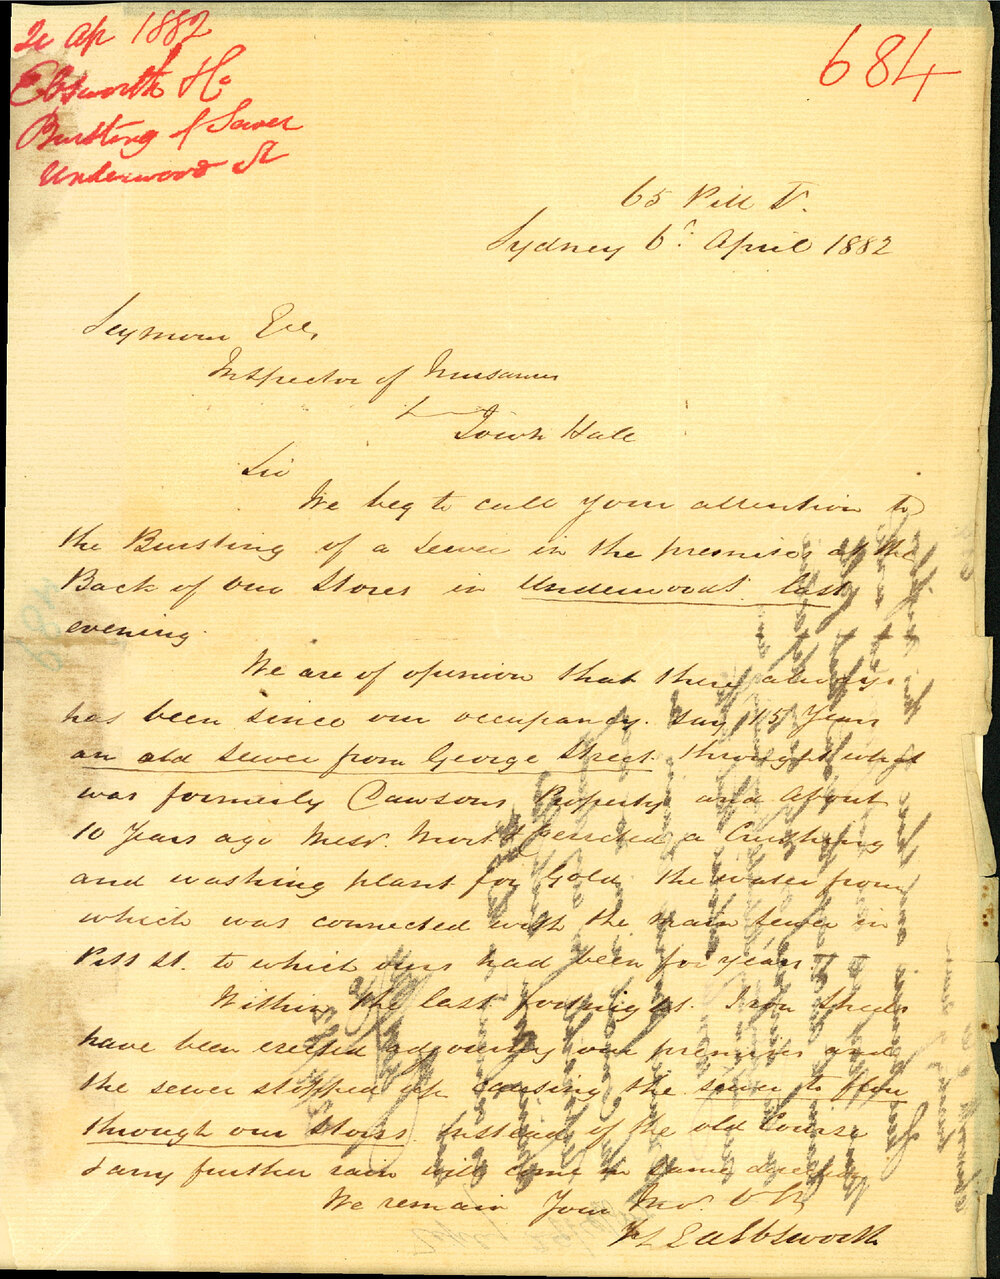 2c Ap 1882
Ebsworth Ho
Bursting of Sewer
Underwood St
684
65 Pitt St.
Sydney 6th April 1882
Seymour Esq
Inspector of Nusances
Town Hall
Sir
We beg to call your attention to
the Bursting of a sewer in the premises at the
Back of our Stores in Underwood St last
evening.
We are of opinion that there always
has been since our occupancy. say 15 Years
an old sewer from George Street. through what
was formerly Cawsons Property and about
10 Years ago Messr. Mort & erected a Crushing
and washing plant for Gold the water from
which was connected with the main sewer in
Pitt St. to which ours had been for years.
Within the last fortnight. Iron Sheds
have been erected adjoining our premises and
the sewer stopped up causing the sewer to flow
through our Stores. instead of the old Course
& any further rain will come in same direction
We remain Your
Ebsworth